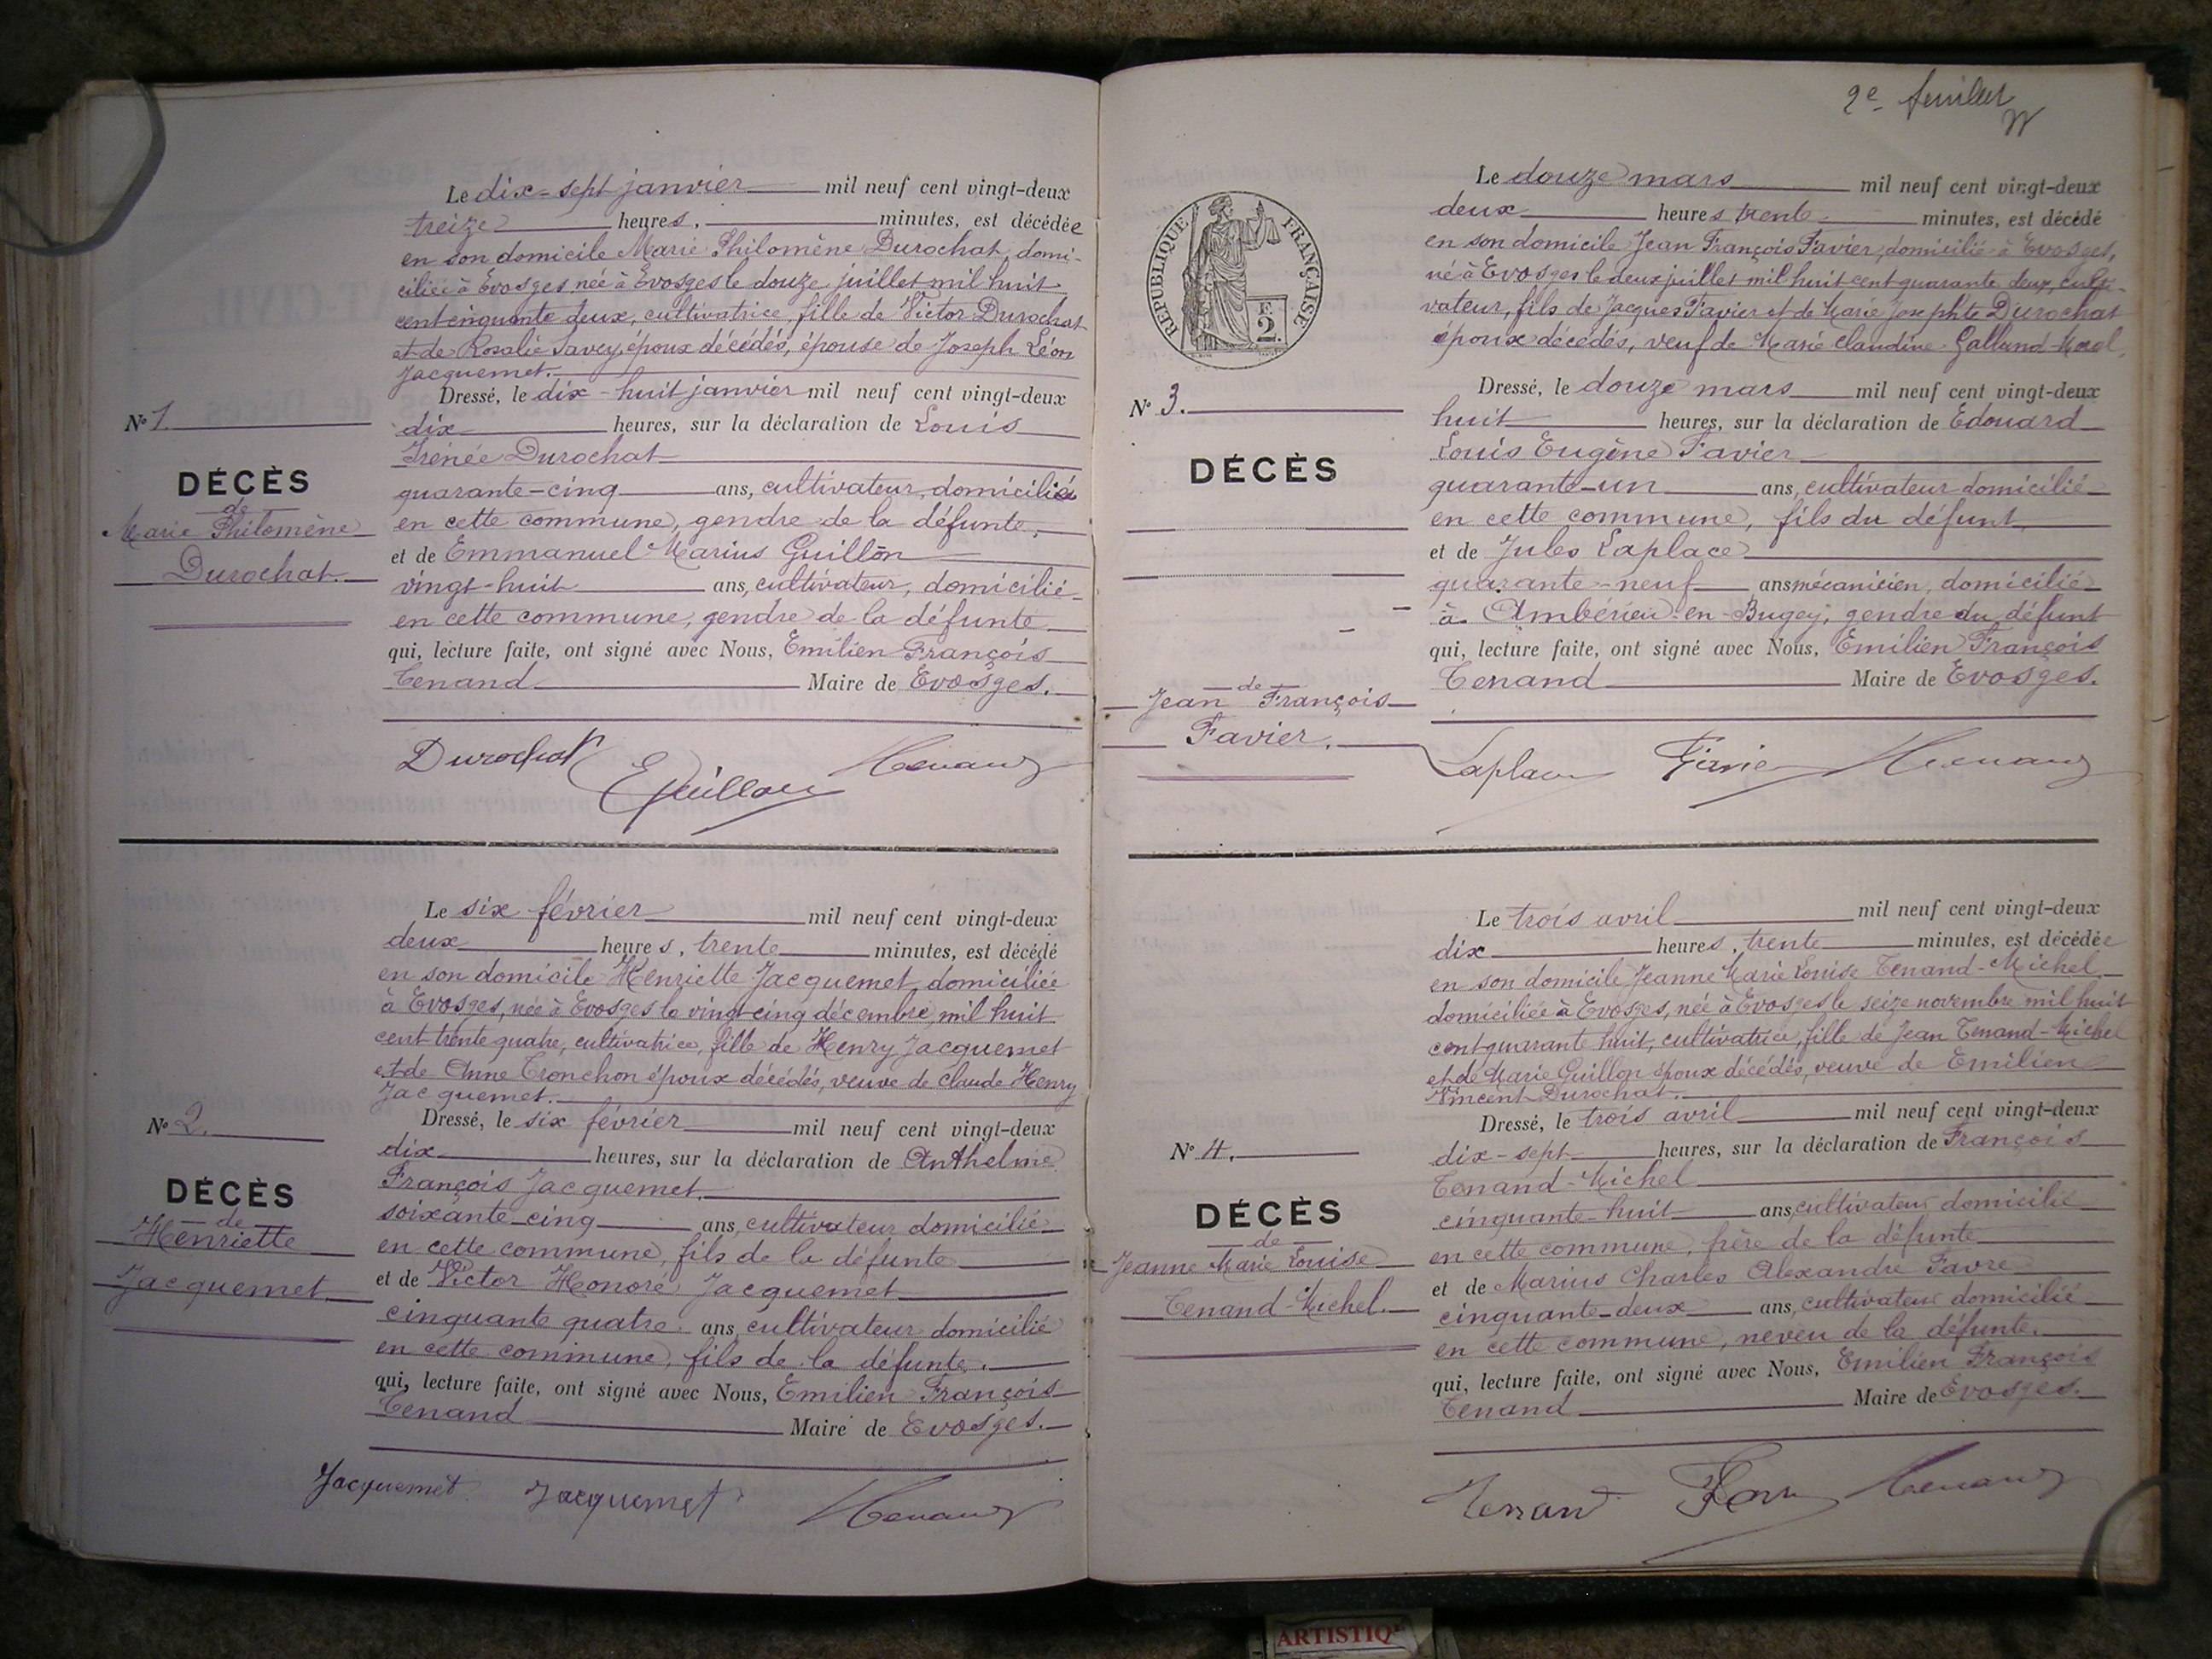 Le dix-sept janvier mil neuf cent vingt-deux
treize heures, minutes, est décédée
en son domicile Marie Philomène Durochat, domi-
ciliée à Evosges, née à Evosges le douze juillet mil huit
cent cinquante deux, cultivatrice, fille de Victor Durochat
et de Rosalie Savey, époux décédés, épouse de Joseph Léon
Jacquemet.
Dressé, le dix-huit janvier mil neuf cent vingt-deux
dix heures, sur la déclaration de Louis
Irénée Durochat
quarante-cinq ans, cultivateur, domicilié
en cette commune, gendre de la défunte,
et de Emmanuel Marius Guillon
vingt-huit ans, cultivateur, domicilié
en cette commune, gendre de la défunte
qui, lecture faite, ont signé avec Nous, Emilien François
Tenand Maire de Evosges.
No 1.
DÉCÈS
de
Marie Philomène
Durochat.
Durochat EGuillon Tenand
Le six février mil neuf cent vingt-deux
deux heures, trente minutes, est décédé
en son domicile Henriette Jacquemet domiciliée
à Evosges, née à Evosges le vingt-cinq décembre, mil huit
cent trente quatre, cultivatrice, fille de Henry Jacquemet
et de Anne Tronchon époux décédés, veuve de Claude Henry
Jacquemet.
Dressé, le six février mil neuf cent vingt-deux
dix heures, sur la déclaration de Anthelme
François Jacquemet
soixante-cinq ans, cultivateur domicilié
en cette commune, fils de la défunte
et de Victor Honoré Jacquemet
cinquante quatre ans, cultivateur domicilié
en cette commune, fils de la défunte.
qui, lecture faite, ont signé avec Nous, Emilien François
Tenand Maire de Evosges.
No 2.
DÉCÈS
de
Henriette
Jacquemet
Jacquemet Jacquemet Tenand
2e feuillet
RÉPUBLIQUE FRANÇAISE
2F.
Le douze mars mil neuf cent vingt-deux
deux heures trente minutes, est décédé
en son domicile Jean François Favier, domicilié à Evosges,
né à Evosges le deux juillet mil huit cent quarante deux, culti-
vateur, fils de Jacques Favier et de Marie Josephte Durochat
époux décédés, veuf de Marie Claudine Galland
Dressé, le douze mars mil neuf cent vingt-deux
huit heures, sur la déclaration de Edouard
Louis Eugène Favier
quarante-un ans, cultivateur domicilié
en cette commune, fils du défunt
et de Jules Laplace
quarante-neuf ans mécanicien, domicilié
à Ambérieu-en-Bugey, gendre du défunt
qui, lecture faite, ont signé avec Nous, Emilien François
Tenand Maire de Evosges.
No 3.
DÉCÈS
de
Jean François
Favier.
Laplace Favier Tenand
Le trois avril mil neuf cent vingt-deux
dix heures, trente minutes, est décédée
en son domicile Jeanne Marie Louise Tenand-Michel
domiciliée à Evosges, née à Evosges le seize novembre mil huit
cent quarante huit, cultivatrice, fille de Jean Tenand-Michel
et de Marie Guillon époux décédés, veuve de Emilien
Vincent Durochat.
Dressé, le trois avril mil neuf cent vingt-deux
dix-sept heures, sur la déclaration de François
Tenand-Michel
cinquante-huit ans, cultivateur domicilié
en cette commune, frère de la défunte
et de Marius Charles Alexandre Favre
cinquante-deux ans, cultivateur domicilié
en cette commune, neveu de la défunte.
qui, lecture faite, ont signé avec Nous, Emilien François
Tenand Maire de Evosges.
No 4.
DÉCÈS
de
Jeanne Marie Louise
Tenand-Michel.
Tenand Favre Tenand
ARTISTIQ